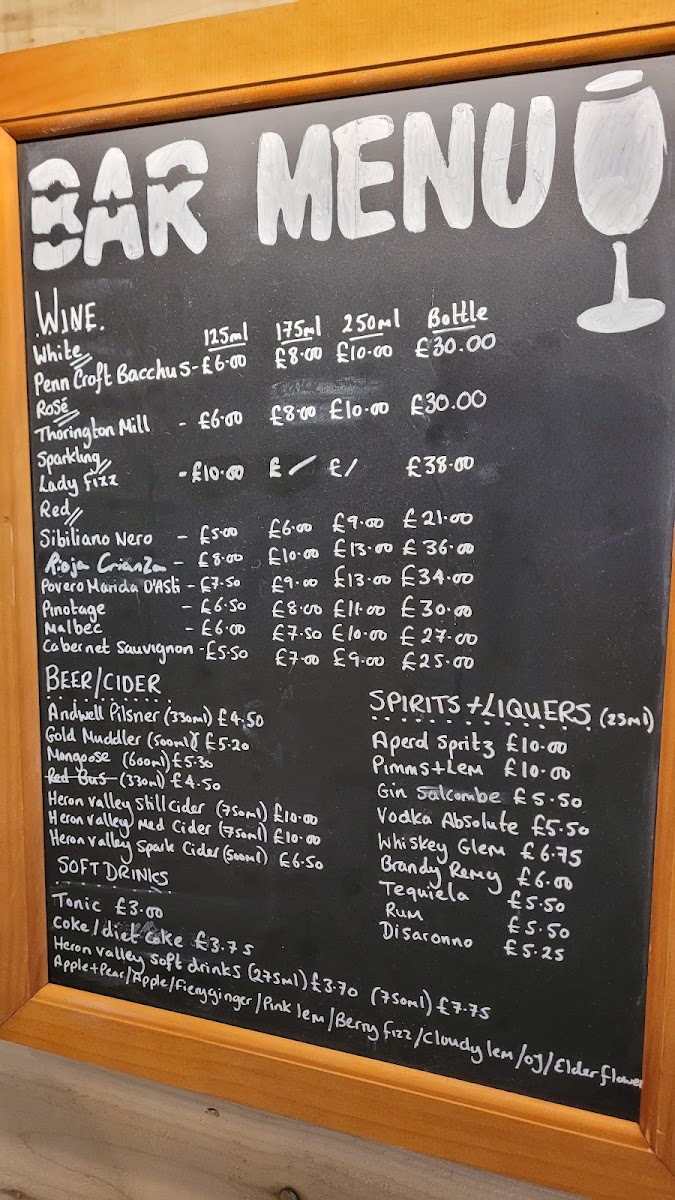 BAR MENU
WINE.
125ml 175ml 250ml Bottle
White
Penn Croft Bacchus - £6.00 £8.00 £10.00 £30.00
Rosé
Thorington Mill - £6.00 £8.00 £10.00 £30.00
Sparkling
Lady Fizz - £10.00 £ / £ / £38.00
Red
Sibiliano Nero - £5.00 £6.00 £9.00 £21.00
Rioja Crianza - £8.00 £10.00 £13.00 £36.00
Povero Marida D'Asti - £7.50 £9.00 £13.00 £34.00
Pinotage - £6.50 £8.00 £11.00 £30.00
Malbec - £6.00 £7.50 £10.00 £27.00
Cabernet Sauvignon - £5.50 £7.00 £9.00 £25.00
BEER/CIDER
Andwell Pilsner (330ml) £4.50
Gold Muddler (500ml) £5.20
Mongoose (600ml) £5.30
Red Bus (330ml) £4.50
Heron Valley Still Cider (750ml) £10.00
Heron Valley Med Cider (750ml) £10.00
Heron Valley Spark Cider (500ml) £6.50
SPIRITS + LIQUERS (25ml)
Aperol Spritz £10.00
Pimms + Lem £10.00
Gin Salcombe £5.50
Vodka Absolute £5.50
Whiskey Glem £6.75
Brandy Remy £6.00
Tequiela £5.50
Rum £5.50
Disaronno £5.25
SOFT DRINKS
Tonic £3.00
Coke/diet coke £3.75
Heron Valley soft drinks (275ml) £3.70 (750ml) £7.75
Apple+Pear/Apple/Fieryginger/Pink lem/Berry fizz/Cloudy lem/OJ/Elderflower